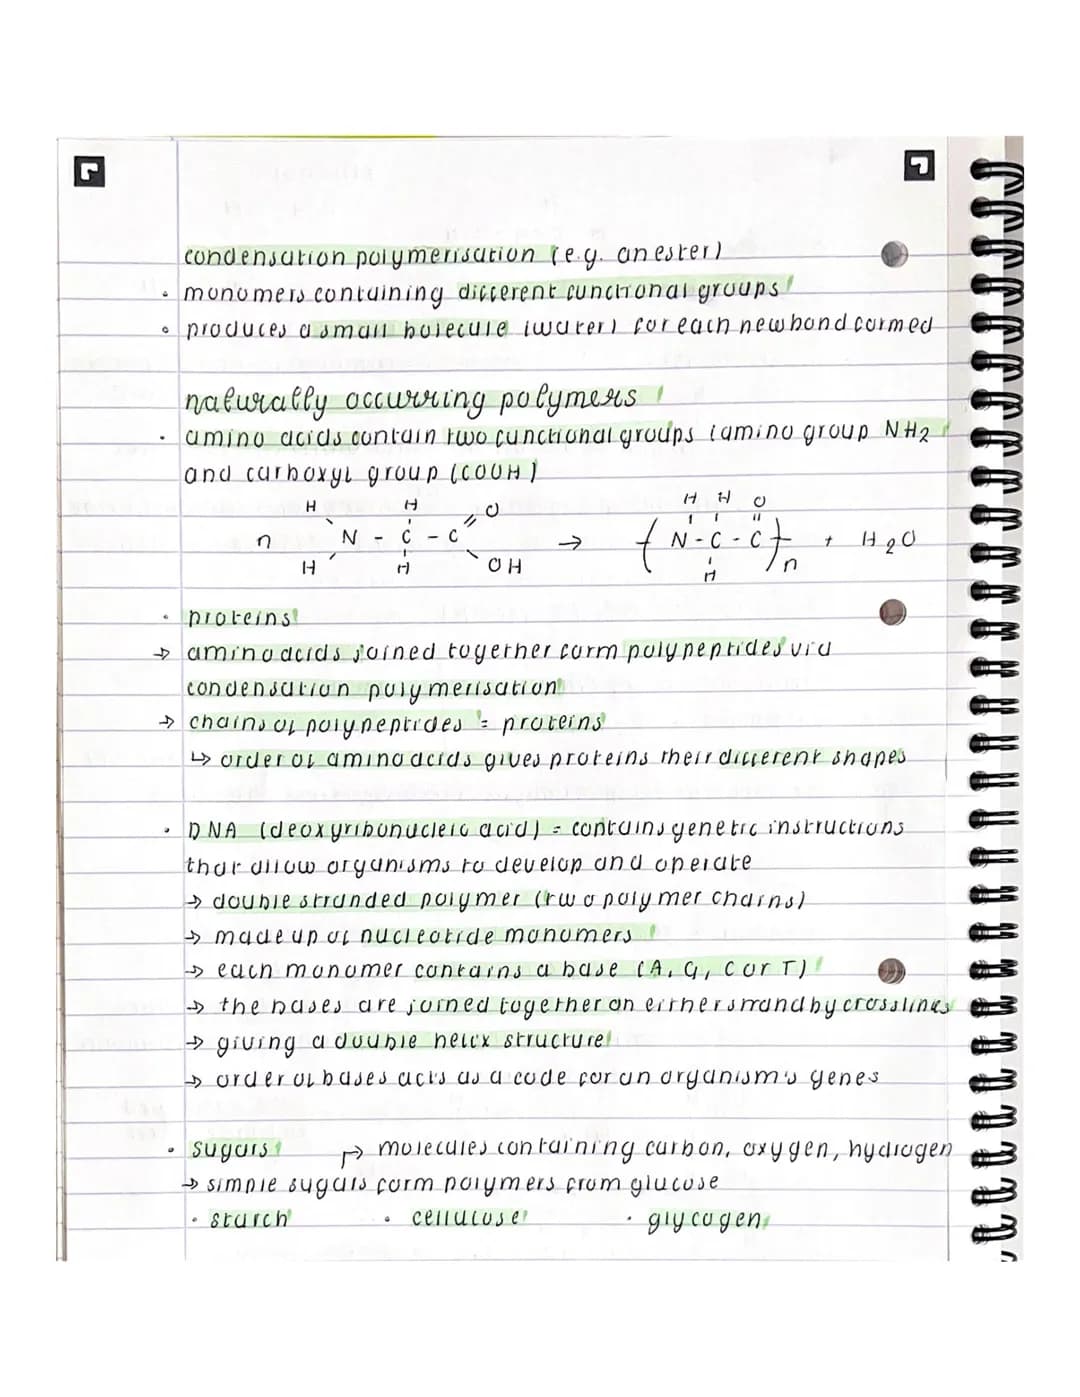 condensation polymerisation (e.g. an ester)
• monomers containing different functional groups
• produces a small bolecule (water) for each new bond formed
naturally occurring polymers
• amino acids contain two functional groups (amino group NH2
and carboxyl group (COOH)
H H O H H O
n N - C - C → ( N - C - C )n + H2O
H H OH H
• proteins
→ amino acids joined together form polypeptides via
condensation polymerisation
→ chains of polypeptides = proteins
↳ order of amino acids gives proteins their different shapes
• DNA (deoxyribonucleic acid) = contains genetic instructions
that allow organisms to develop and operate
→ double stranded polymer (two polymer chains)
→ made up of nucleotide monomers
→ each monomer contains a base (A, G, C or T)
→ the bases are joined together on either strand by crosslinks
→ giving a double helix structure
→ order of bases acts as a code for an organism's genes
• sugars ↱ molecules containing carbon, oxygen, hydrogen
→ simple sugars form polymers from glucose
• starch • cellulose • glycogen